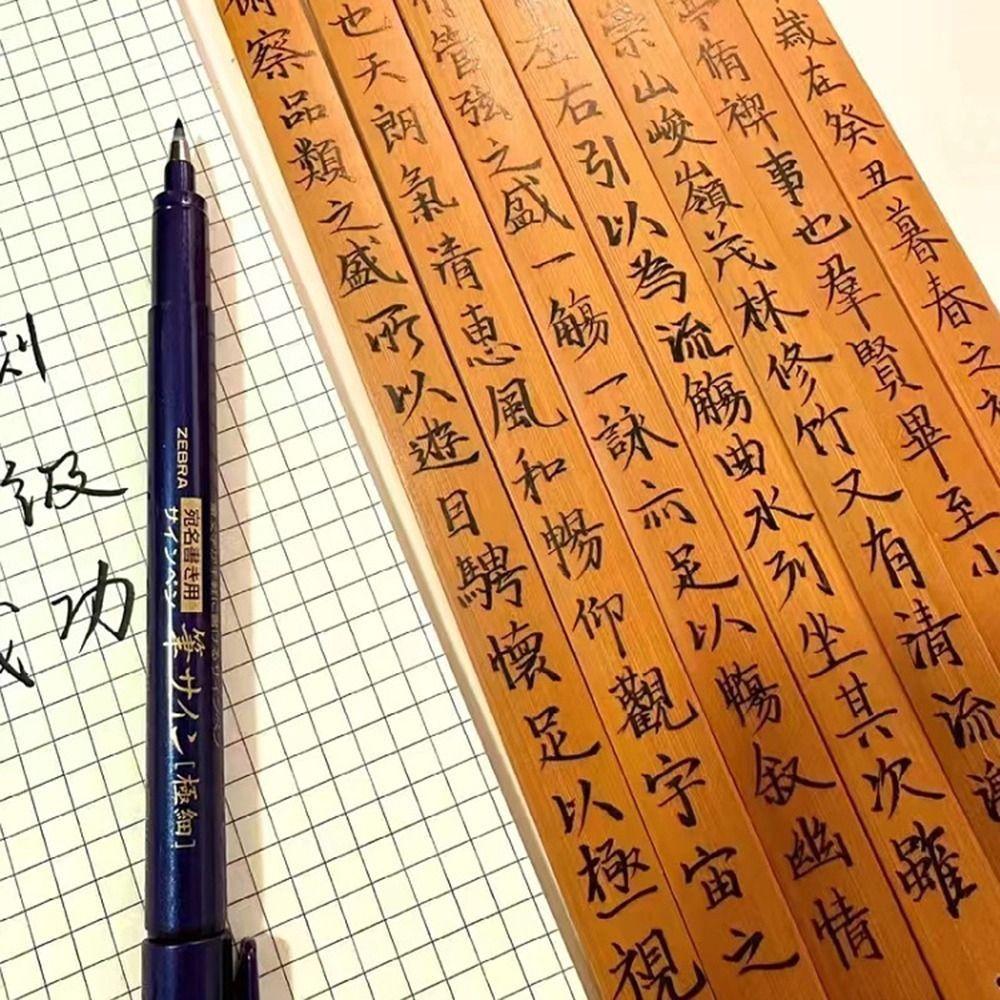 歲在癸丑暮春之
亭脩禊事也羣賢畢至小
崇山峻嶺茂林修竹又有清流
左右引以為流觴曲水列坐其次雖
竹管弦之盛一觴一詠亦足以暢叙幽情
也天朗氣清惠風和暢仰觀宇宙之
俯察品類之盛所以遊目騁懷足以極視
ZEBRA
宛名書き用
サインペン
筆サイン[極細]
刻
级
成功